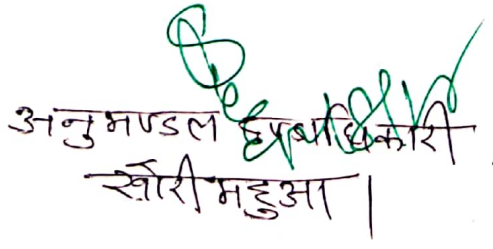 अनुमण्डल पदाधिकारी
खोरी महुआ |